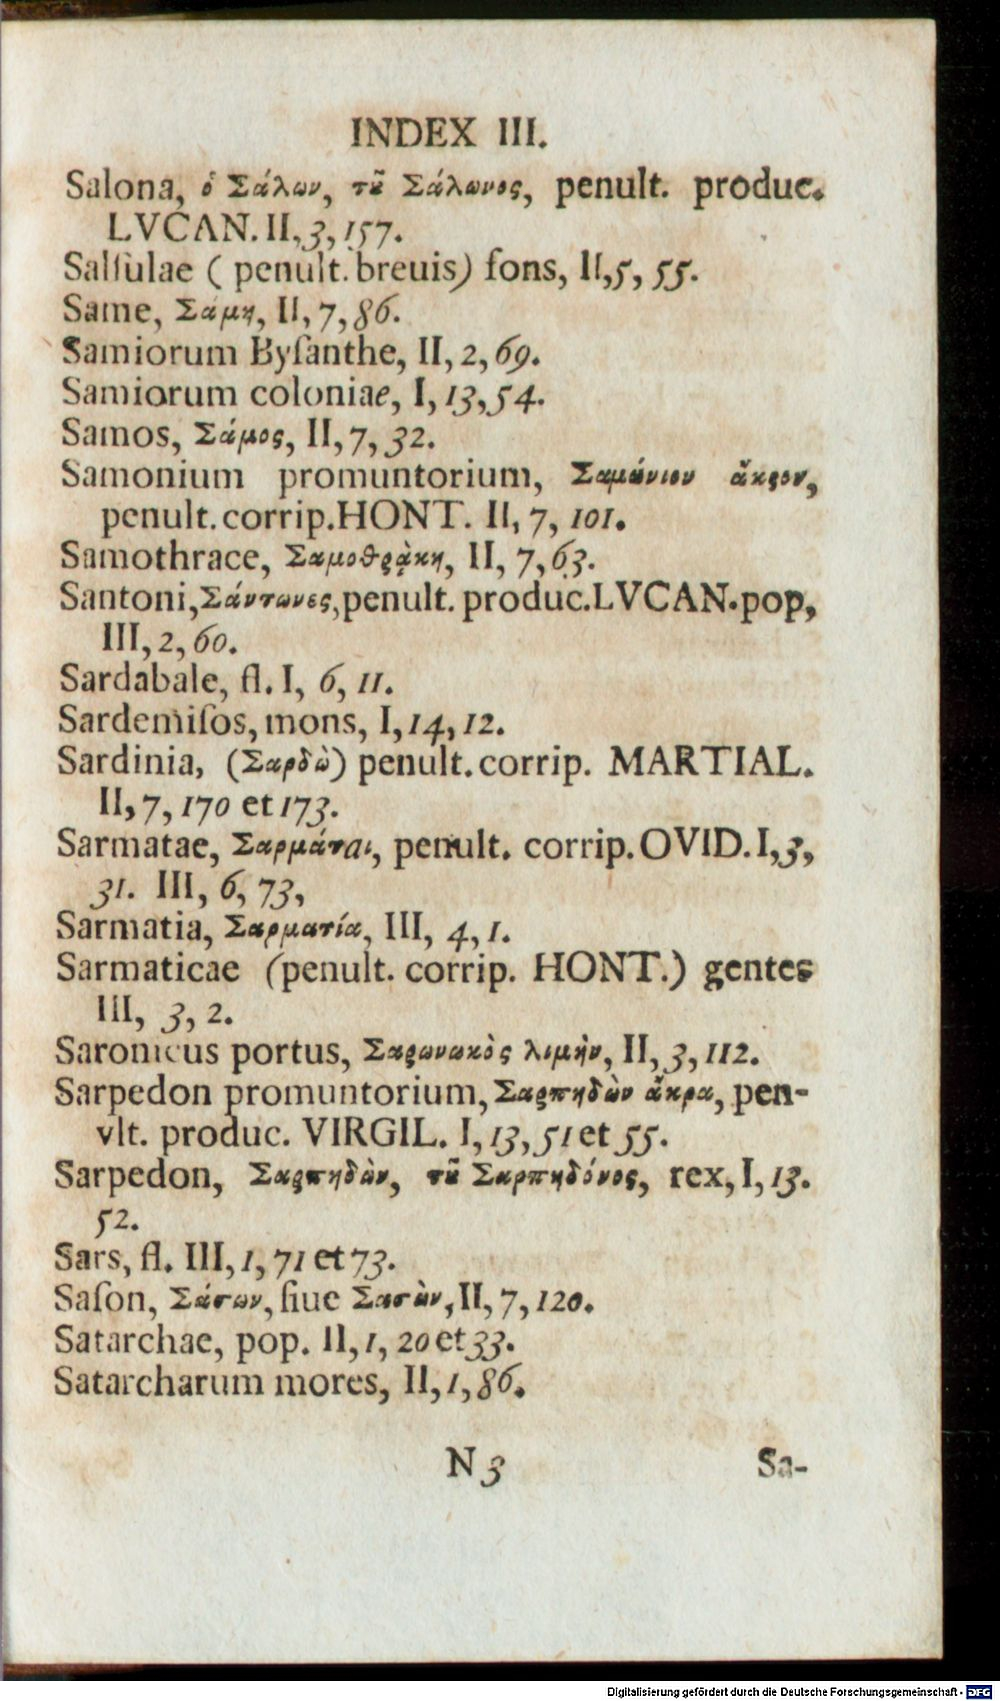 INDEX III.
Salona, ὁ Σάλων, τȣ͂ Σάλωνος, penult. produc.
LVCAN. II, 3, 157.
Salſulae ( penult. breuis) fons, II, 5, 55.
Same, Σάμη, II, 7, 86.
Samiorum Byſanthe, II, 2, 69.
Samiorum coloniae, I, 13, 54.
Samos, Σάμος, II, 7, 32.
Samonium promuntorium, Σαμώνιον ἄκρον,
penult. corrip. HONT. II, 7, 101.
Samothrace, Σαμοθρᾴκη, II, 7, 63.
Santoni, Σάντωνες, penult. produc. LVCAN. pop,
III, 2, 60.
Sardabale, fl. I, 6, 11.
Sardemiſos, mons, I, 14, 12.
Sardinia, (Σαρδὼ) penult. corrip. MARTIAL.
II, 7, 170 et 173.
Sarmatae, Σαρμάται, penult. corrip. OVID. I, 3,
31. III, 6, 73,
Sarmatia, Σαρματία, III, 4, 1.
Sarmaticae (penult. corrip. HONT.) gentes
III, 3, 2.
Saronicus portus, Σαρωνικὸς λιμὴν, II, 3, 112.
Sarpedon promuntorium, Σαρπηδὼν ἄκρα, pen-
vlt. produc. VIRGIL. I, 13, 51 et 55.
Sarpedon, Σαρπηδὼν, τȣ͂ Σαρπηδόνος, rex, I, 13.
52.
Sars, fl. III, 1, 71 et 73.
Saſon, Σάσων, ſiue Σασὼν, II, 7, 120.
Satarchae, pop. II, 1, 20 et 33.
Satarcharum mores, II, 1, 86.
N 3
Sa-
Digitalisierung gefördert durch die Deutsche Forschungsgemeinschaft - DFG